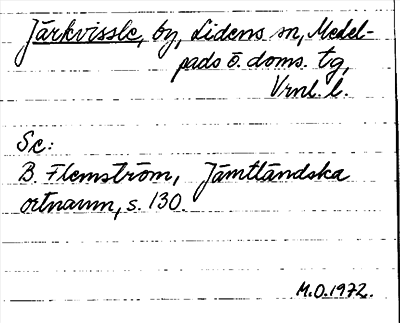 Järkvissle, by, Lidens sn, Medel-
pads ö. doms. tg,
Vrnl. l.
Se:
B. Flemström, Jämtländska
ortnamn, s. 130.
M.O. 1972.